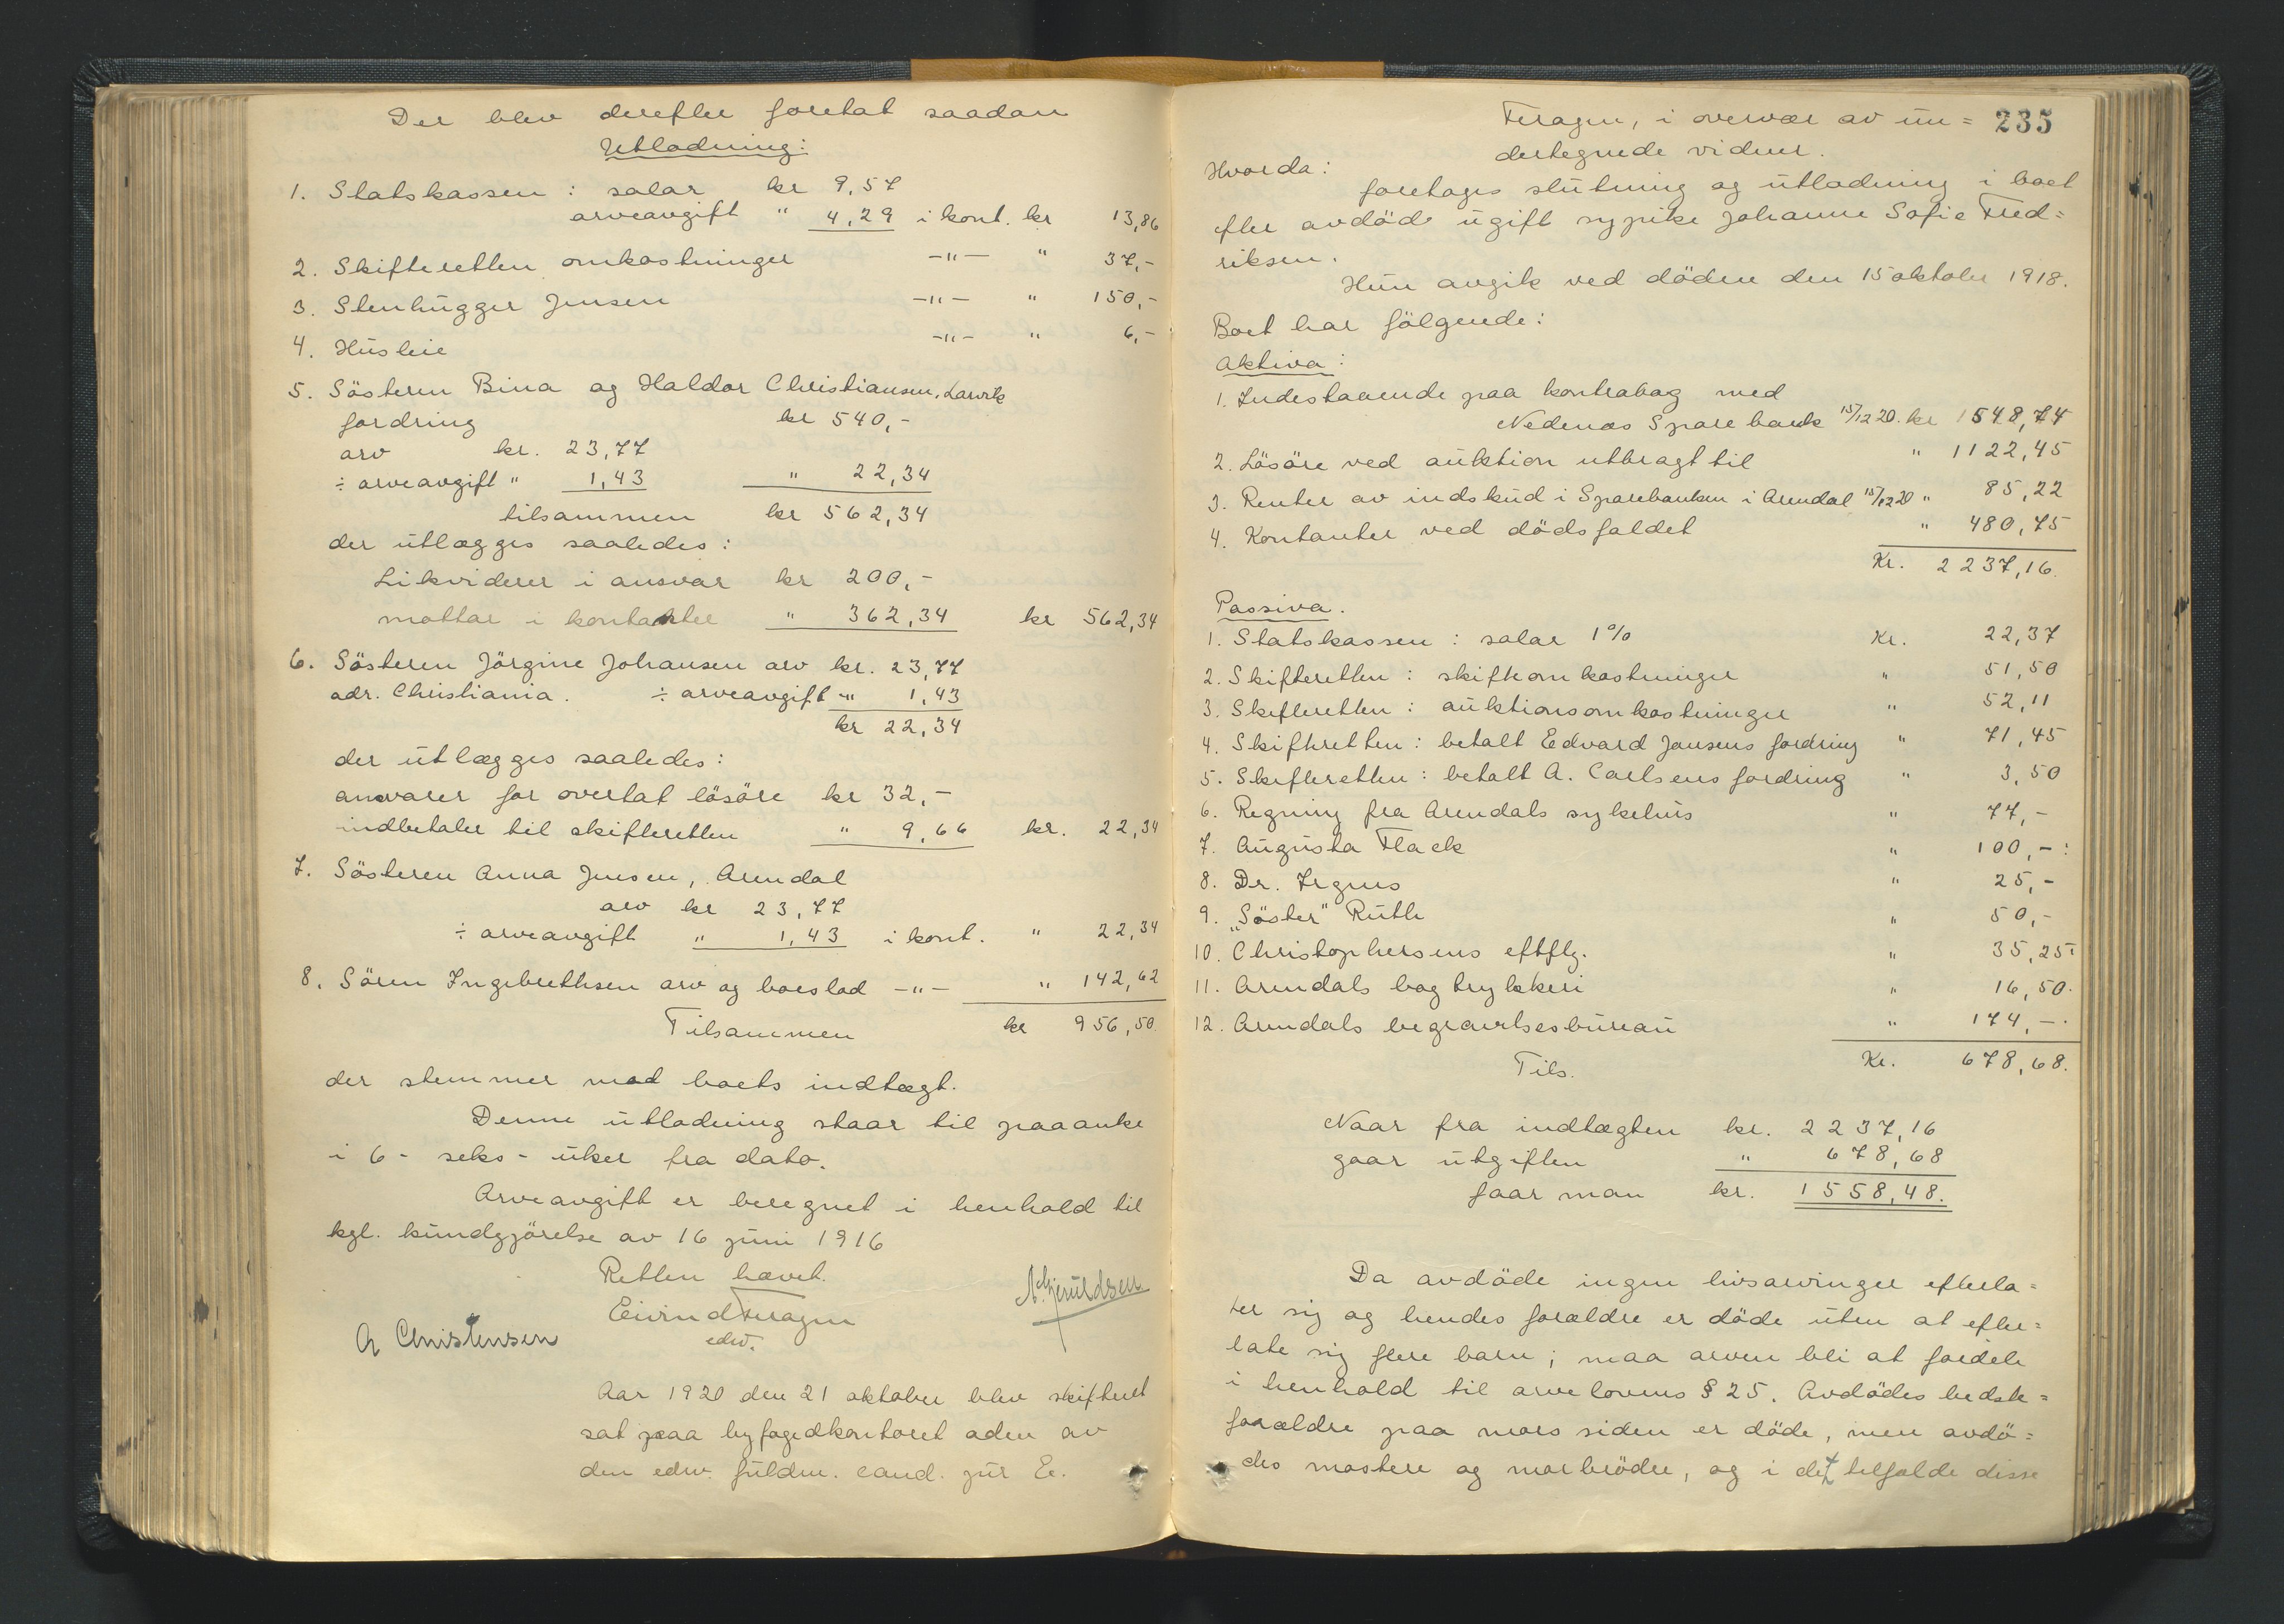 Der blev derefter foretat saadan
Utlodning:
1. Statskassen : salar kr 9,57
arveavgift " 4,29 i kont. kr 13,86
2. Skifteretten omkostninger -"- " 37,-
3. Stenhugger Jensen -"- " 150,-
4. Husleie -"- " 6,-
5. Søsteren Bina og Haldor Christiansen, Larvik
fordring kr 540,-
arv kr. 23,77
÷ arveavgift " 1,43 " 22,34
tilsammen kr 562,34
der utlægges saaledes:
Likviderer i ansvar kr 200,-
mottar i kontanter " 362,34 kr 562,34
6. Søsteren Jørgine Johansen arv kr. 23,77
adr. Christiania. ÷ arveavgift -" 1,43
kr 22,34
der utlægges saaledes:
ansvarer for overtat løsøre kr 32,-
indbetaler til skifteretten " 9,66 kr. 22,34
7. Søsteren Anna Jensen, Arendal
arv kr 23,77
÷ arveavgift " 1,43 i kont. " 22,34
8. Søren Ingebrethsen arv og boeslod -"- " 142,62
Tilsammen kr 956,50.
der stemmer mod boets indtægt.
Denne utlodning staar til paaanke
i 6 - seks - uker fra dato.
Arveavgift er beregnet i henhold til
kgl. kundgjørelse av 16 juni 1916
Retten hævet.
Eivind Feragen
edsv.
A Christensen
N. Gjeruldsen
Aar 1920 den 21 oktober blev skifteret
sat paa byfogedkontoret aden av
den edsv. fuldm. cand. jur E.
235
Feragen, i overvær av un=
dertegnede vidner.
Hvorda:
foretages slutning og utlodning i boet
efter avdøde ugift sypike Johanne Sofie Fred=
riksen.
Hun avgik ved døden den 15 oktober 1918.
Boet har følgende:
Aktiva:
1. Indestaaende paa kontrabog med
Nedenæs Sparebank 15/12 20. kr 1548,74
2. Løsøre ved auktion utbragt til " 1122,45
3. Renter av indskud i Sparebanken i Arendal 15/12 20 " 85,22
4. Kontanter ved dødsfaldet " 480,75
Kr. 2237,16.
Passiva.
1. Statskassen : salar 1% Kr. 22,37
2. Skifteretten : skifteomkostninger " 51,50
3. Skifteretten : auktionsomkostninger " 52,11
4. Skifteretten : betalt Edvard Jansens fordring " 71,45
5. Skifteretten : betalt A. Carlsens fordring " 3,50
6. Regning fra Arendals sykehus " 77,-
7. Augusta Flack " 100,-
8. Dr. " 25,-
9. „Søster" Ruth " 50,-
10. Christophersens eftflg. " 35,25
11. Arendals bogtrykkeri " 16,50.
12. Arendals begravelsesbureau " 174,-.
Tils. Kr. 678,68.
Naar fra indtægten kr. 2237,16
gaar utgiften " 678,68
faar man kr. 1558,48.
Da avdøde ingen livsarvinger efterla=
ter sig og hendes forældre er døde uten at efter=
late sig flere barn; maa arven bli at fordele
i henhold til arvelovens § 25. Avdødes bedste=
forældre paa mors siden er døde, men avdø=
des mostere og morbrødre, og i det tilfælde disse